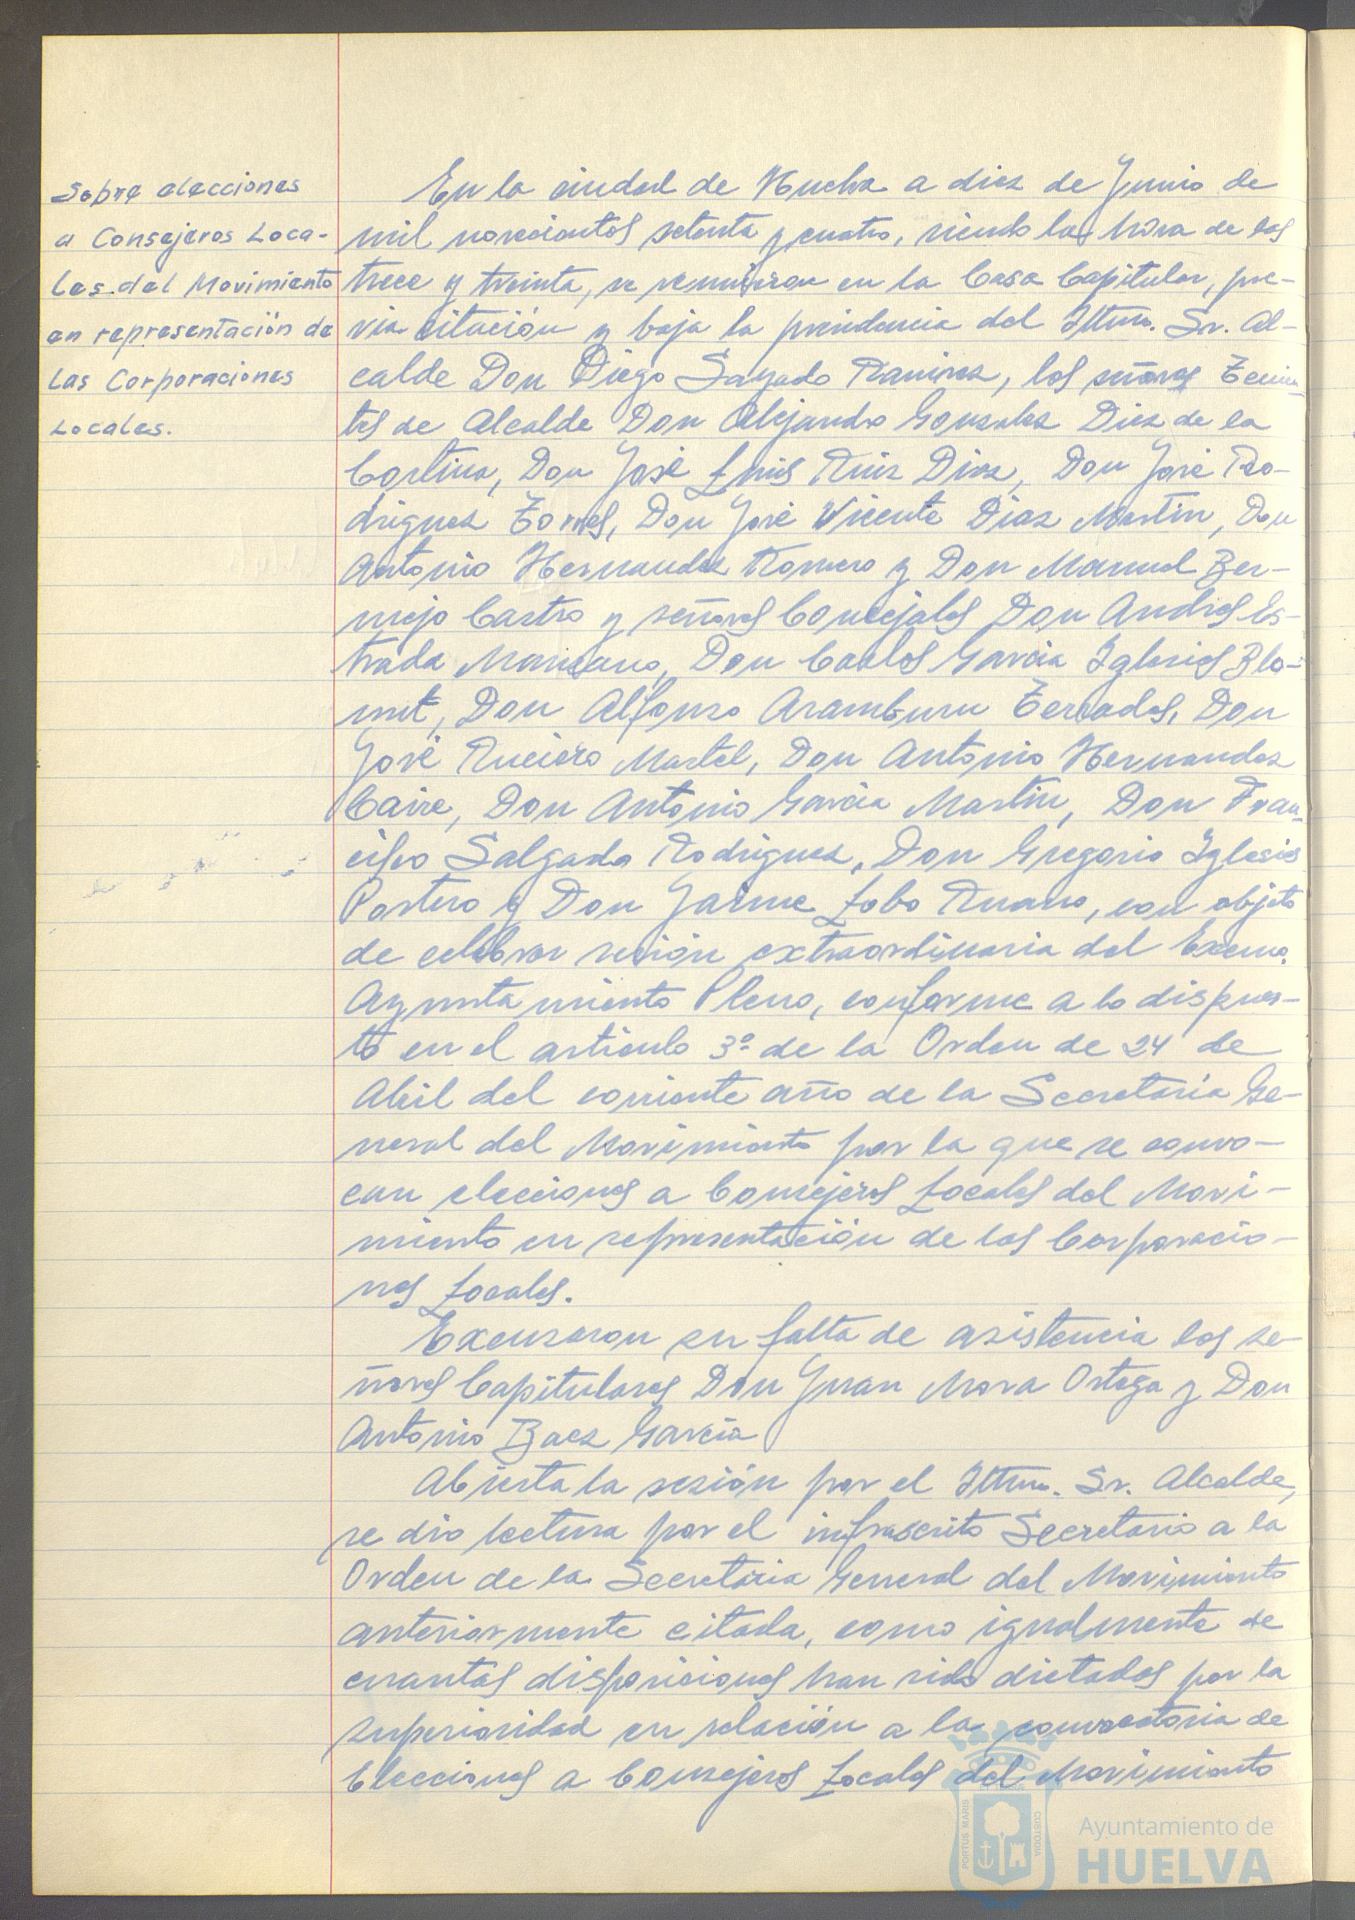 Sobre elecciones
a Consejeros Loca-
les del Movimiento
en representación de
las Corporaciones
Locales.
En la ciudad de Huelva a diez de Junio de
mil novecientos setenta y cuatro, siendo la hora de las
trece y treinta, se reunieron en la Casa Capitular, pre-
via citación y bajo la presidencia del Iltmo. Sr. Al-
calde Don Diego Sayago Ramirez, los señores Tenien-
tes de Alcalde Don Alejandro Gonzalez Diez de la
Cortina, Don José Luis Ruiz Diaz, Don José Ro-
driguez Torres, Don José Vicente Diaz Martin, Don
Antonio Hernandez Romero y Don Manuel Ber-
mejo Castro y señores Concejales Don Andres Es-
trada Manzano, Don Carlos Garcia Iglesias Blo-
unt, Don Alfonso Aramburu Terrades, Don
José Ruciero Martel, Don Antonio Hernandez
Caire, Don Antonio Garcia Martin, Don Fran-
cisco Salgado Rodriguez, Don Gregorio Iglesias
Portero y Don Jaime Lobo Ruano, con objeto
de celebrar sesión extraordinaria del Excmo.
Ayuntamiento Pleno, conforme a lo dispues-
to en el articulo 3º de la Orden de 24 de
Abril del corriente año de la Secretaria Ge-
neral del Movimiento por la que se convo-
can elecciones a Consejeros Locales del Movi-
miento en representación de las Corporacio-
nes Locales.
Excusaron su falta de asistencia los se-
ñores Capitulares Don Juan Mora Ortega y Don
Antonio Baez Garcia
Abierta la sesión por el Iltmo. Sr. Alcalde,
se dio lectura por el infrascrito Secretario a la
Orden de la Secretaria General del Movimiento
anteriormente citada, como igualmente de
cuantas disposiciones han sido dictadas por la
superioridad en relación a la convocatoria de
Elecciones a Consejeros Locales del Movimiento
PORTUS MARIS
CUSTODIA
Ayuntamiento de
HUELVA